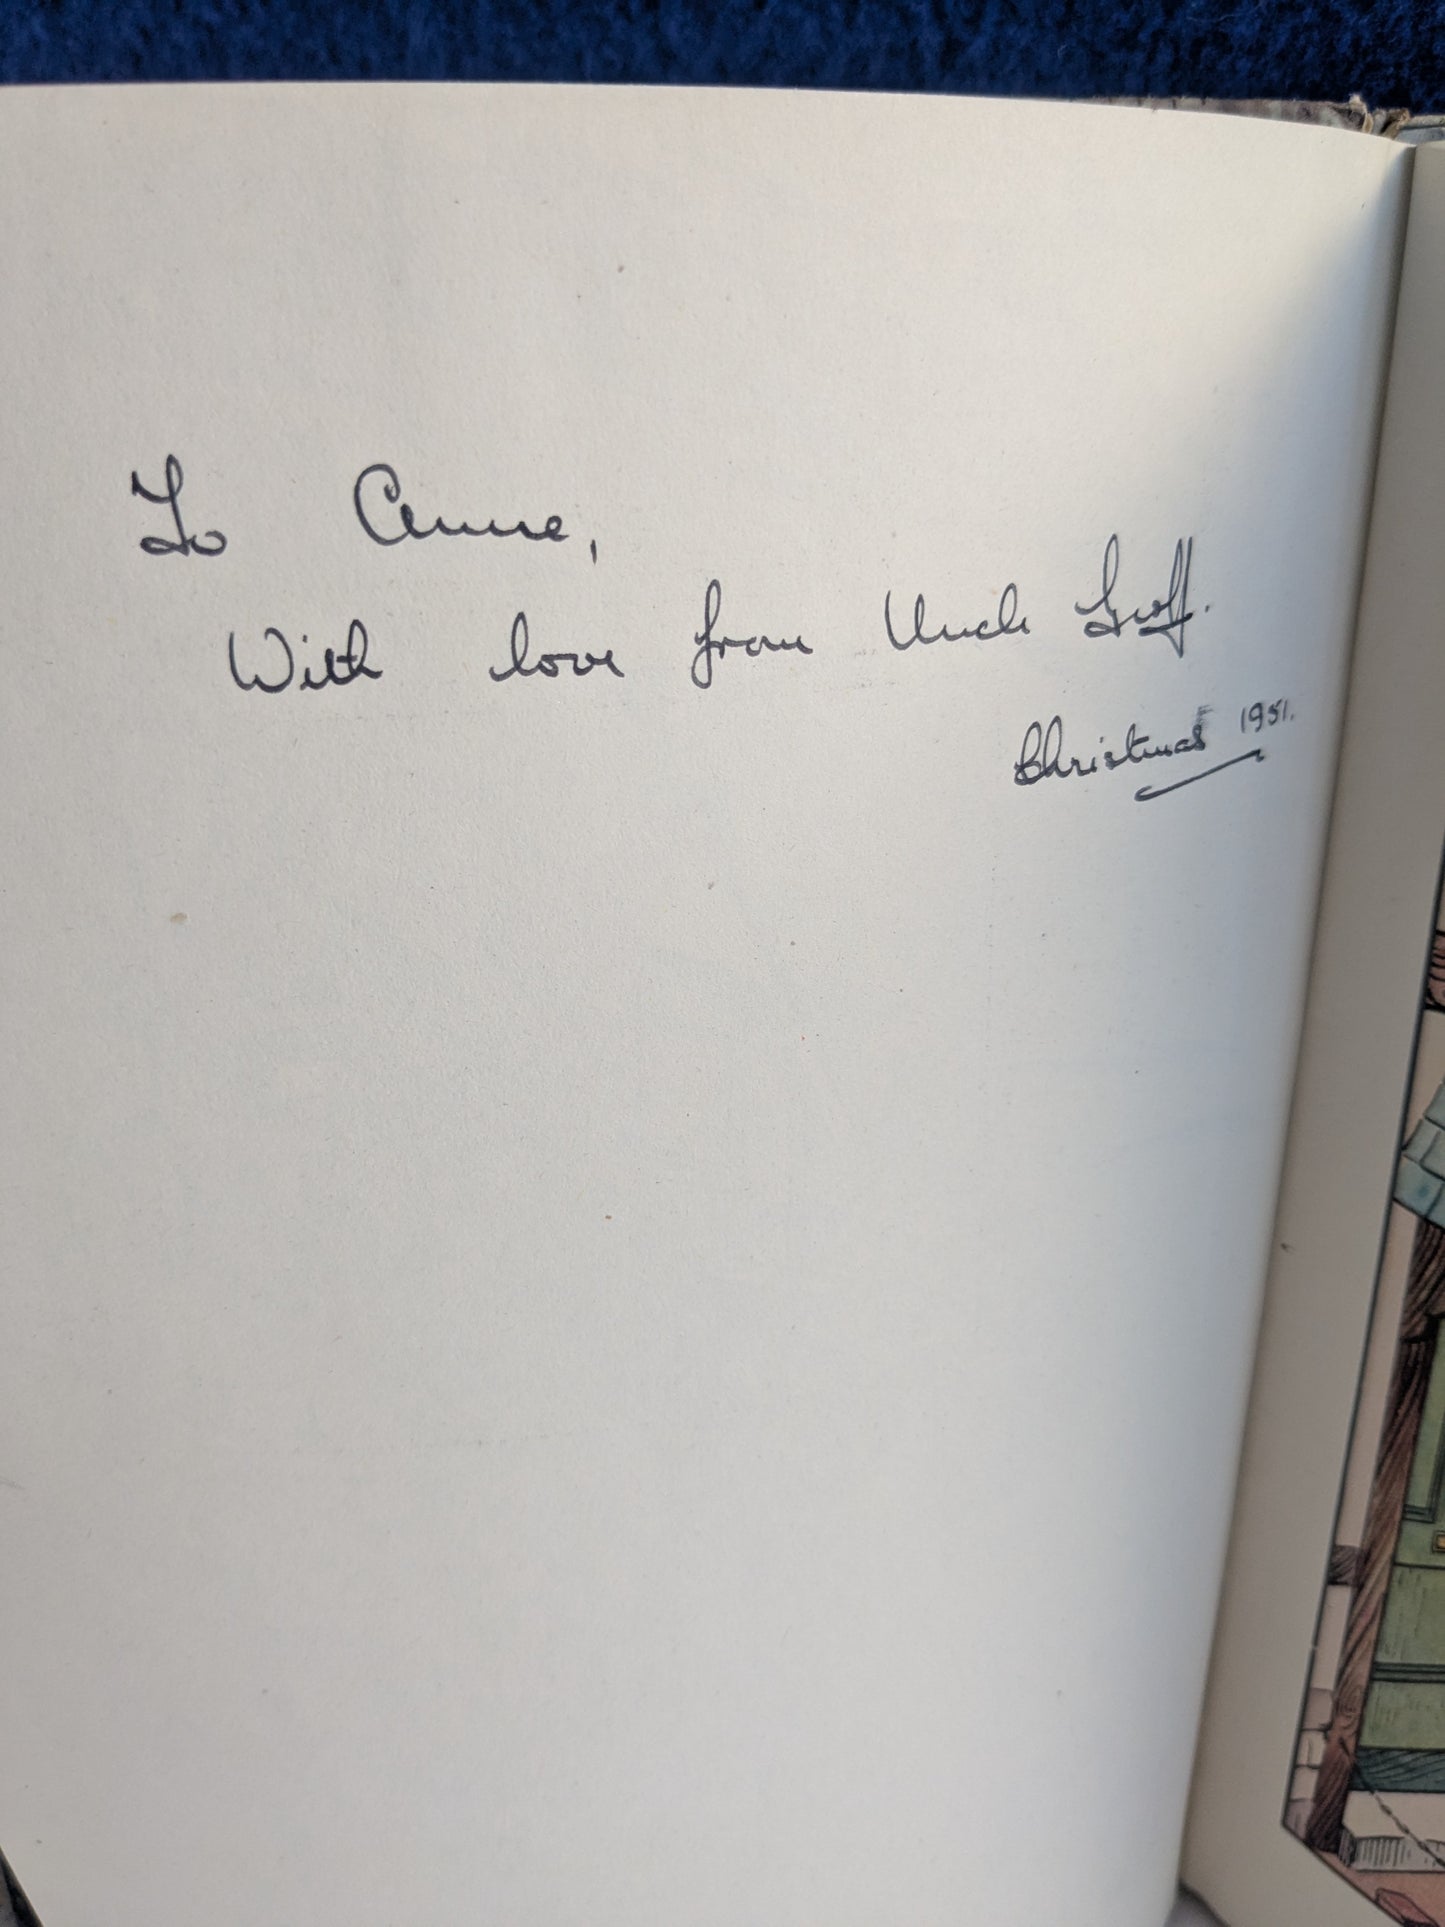 To Anne,
With love from Uncle Geoff.
Christmas 1951.